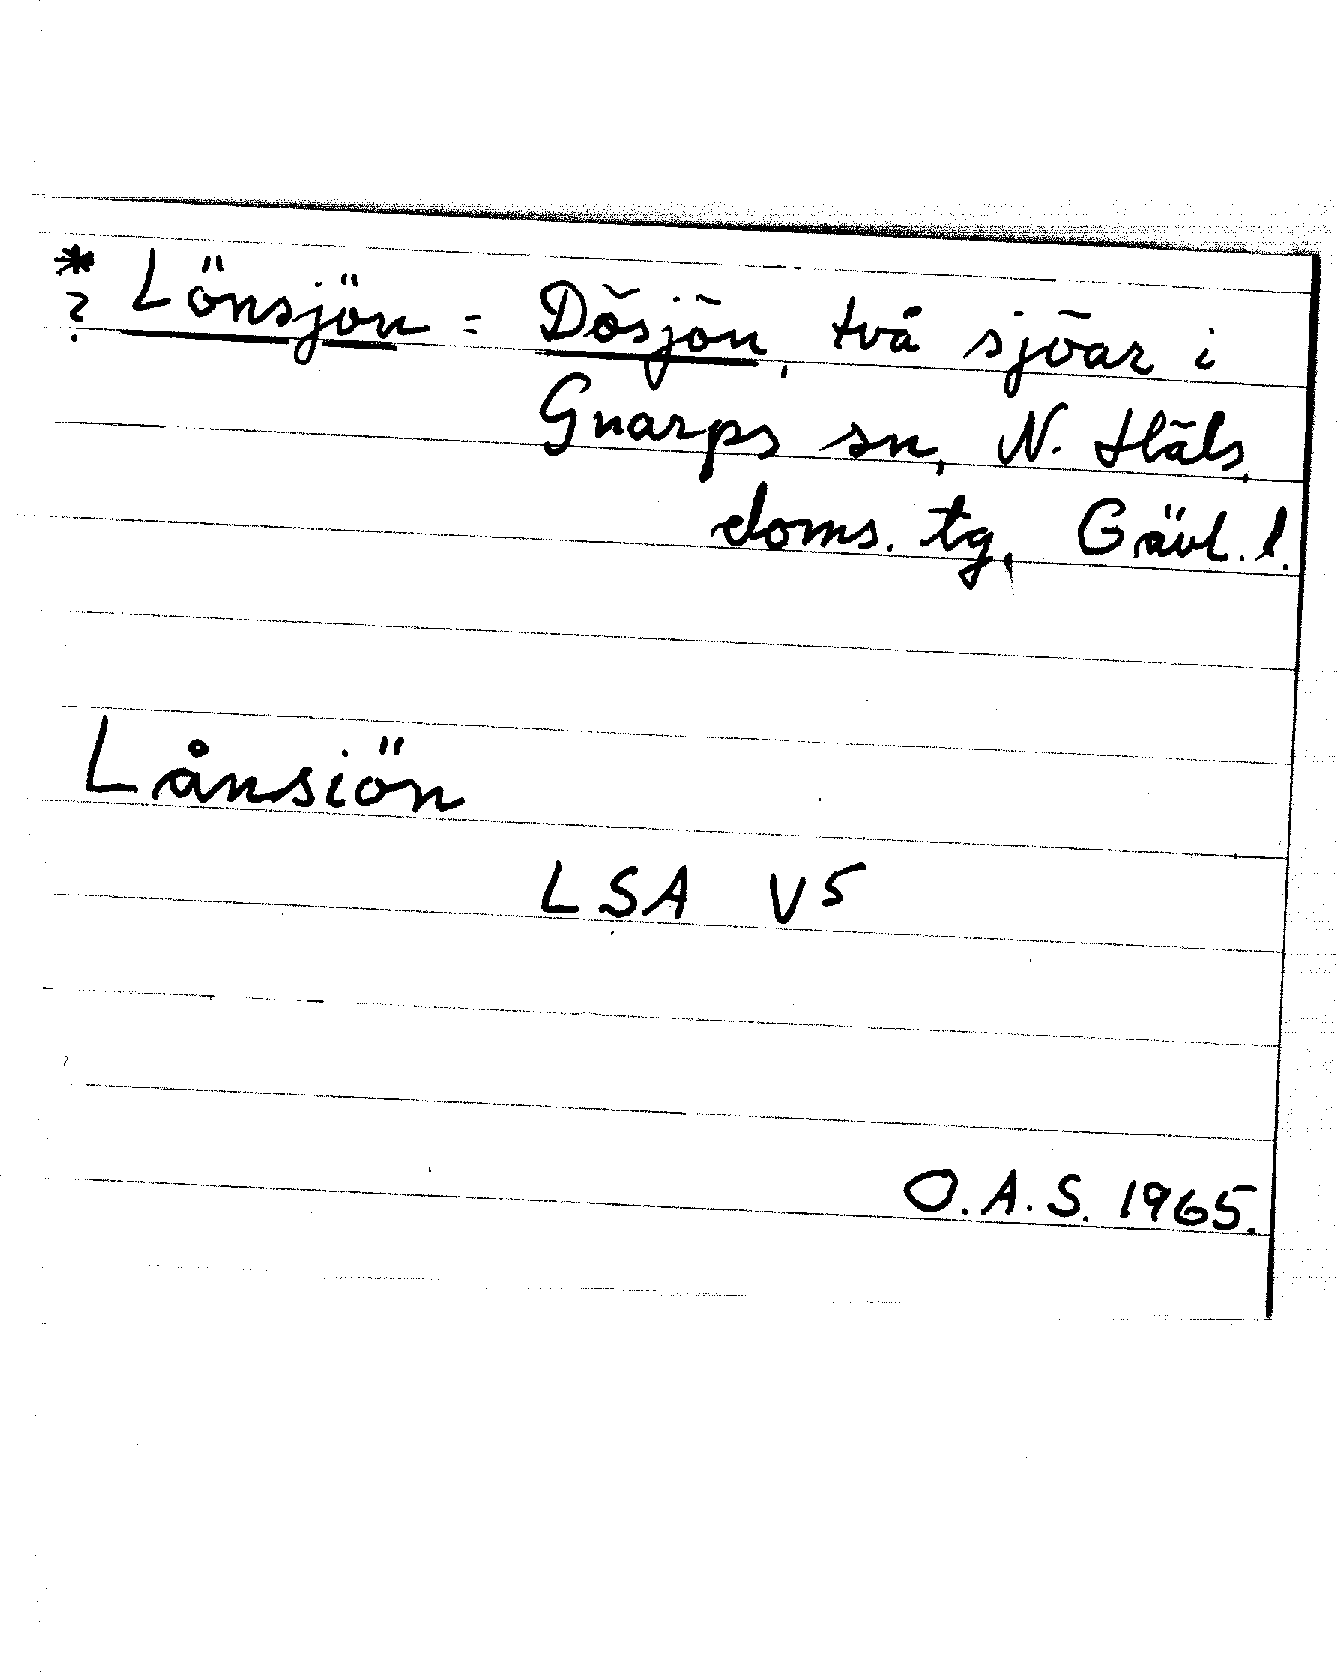 * Lönsjön = Dösjön, två sjöar i
? Gnarps sn, N. Häls.
doms. tg, Gävl. l.
Lånsiön
LSA V5
O.A.S. 1965.